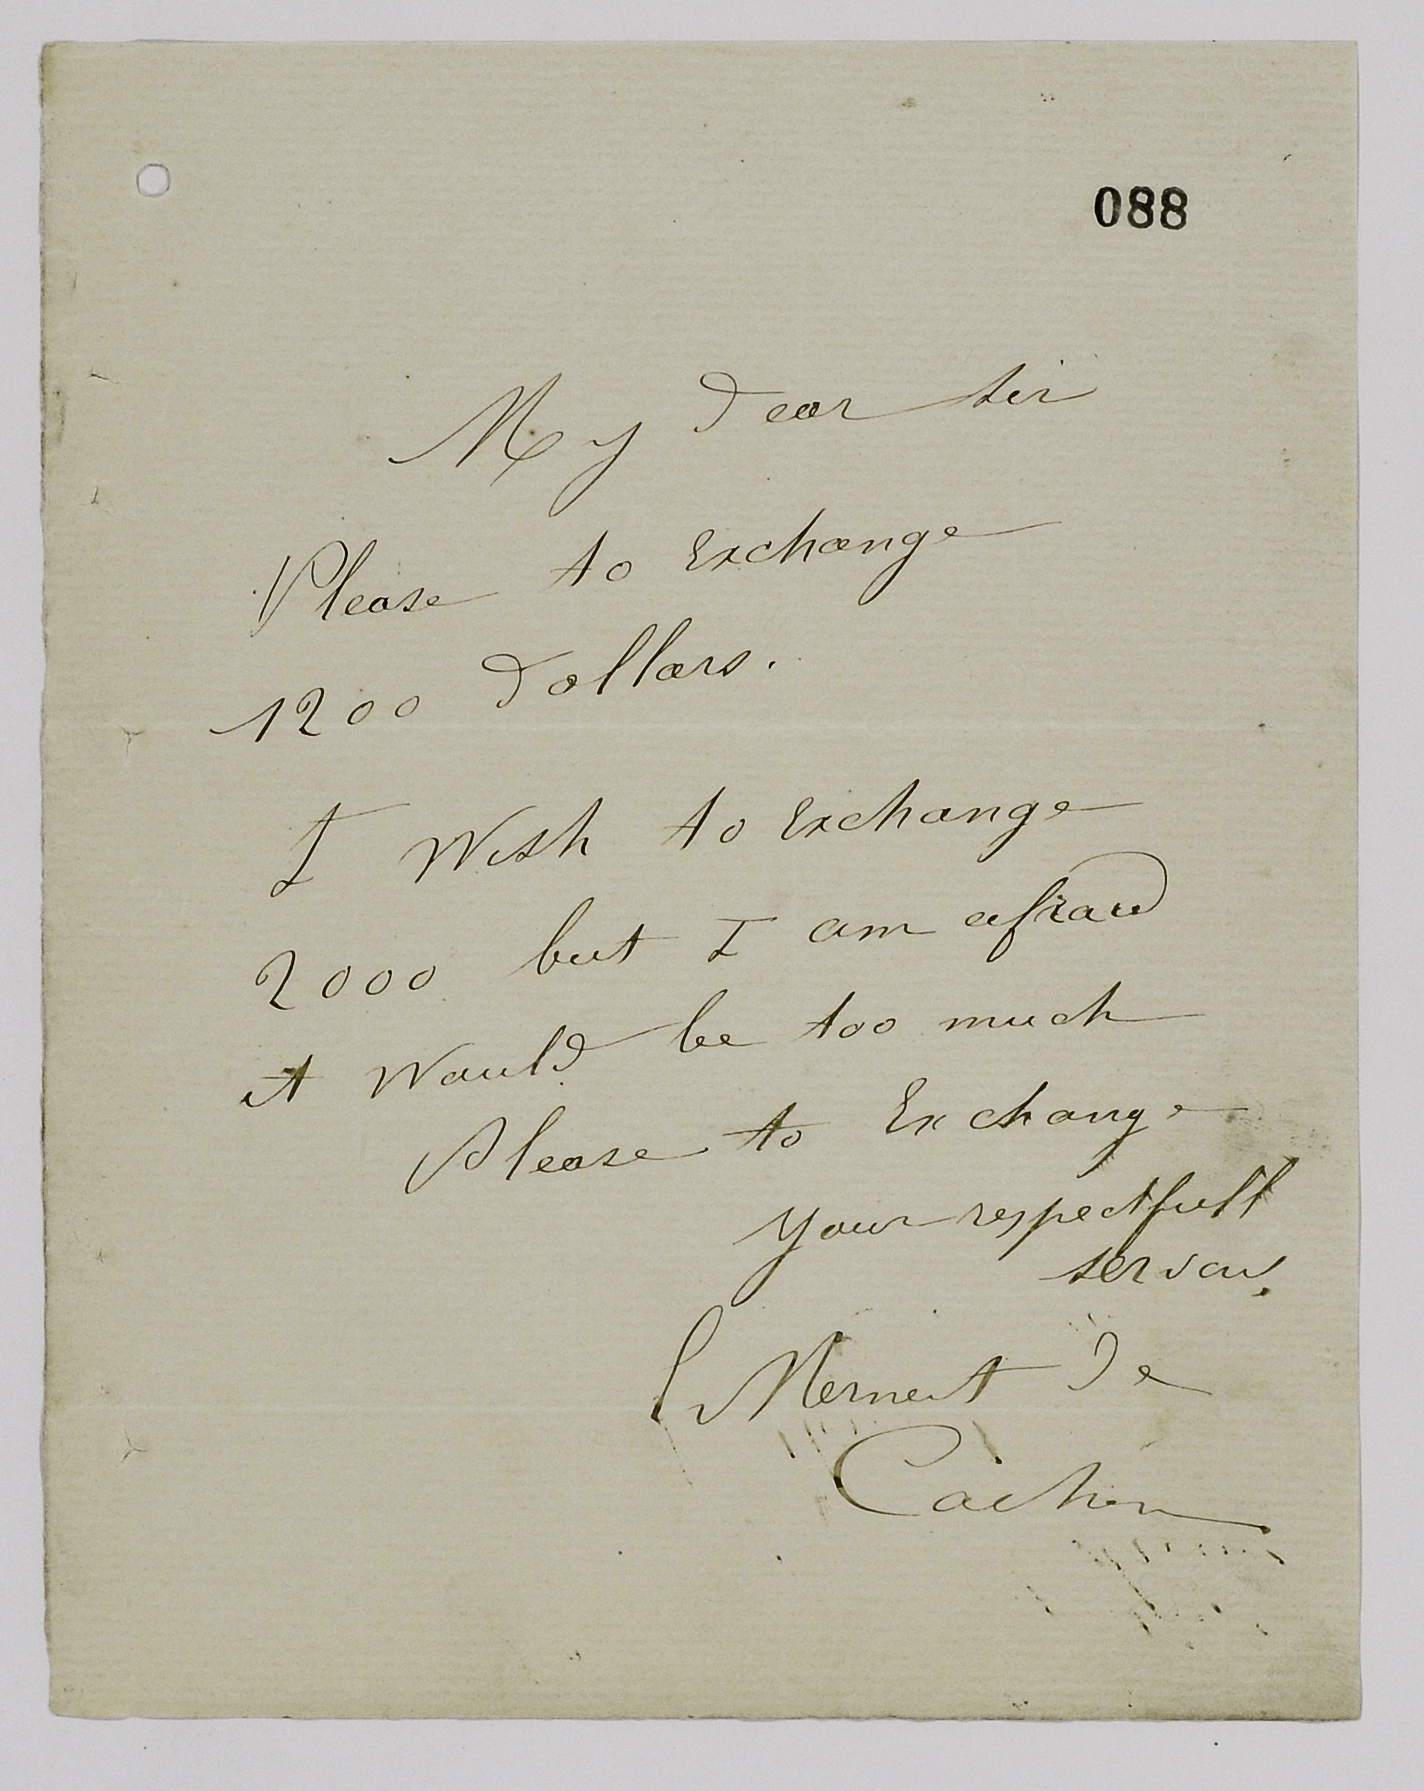 088
My dear sir
Please to Exchange
1200 dollars.
I Wish to Exchange
2000 but I am afraid
it Would be too much
Please to Exchange
your respectfull
servan,
Mermet de
Cachon